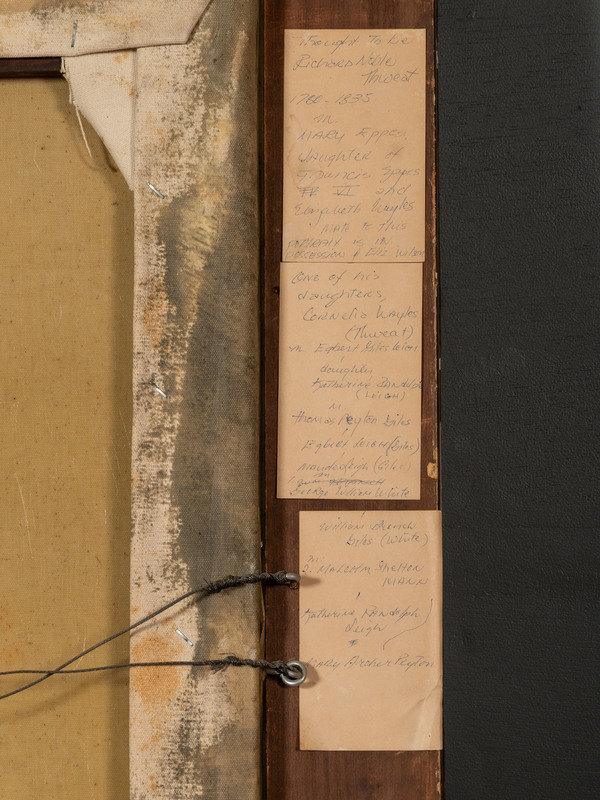 Thought to be
Richard Noble
Thweat
1780-1835
m
MARY Eppes,
daughter of
Francis Eppes
VI and
Elizabeth Wayles
MATE to this
PORTRAIT IS IN
POSSESSION of Eliz Wilson
One of his
daughters,
Cornelia Wayles
(Thweat)
m. Egbert Giles Leigh
daughter
Katherine Randolph
(LEIGH)
m
Thomas Peyton Giles
Egbert Leigh (Giles)
Leigh (Giles)
m
George William White
William Branch
Giles (White)
m.
2. Malcolm Shelton
MANN
Katherine Randolph
Leigh
Mary Archer Peyton